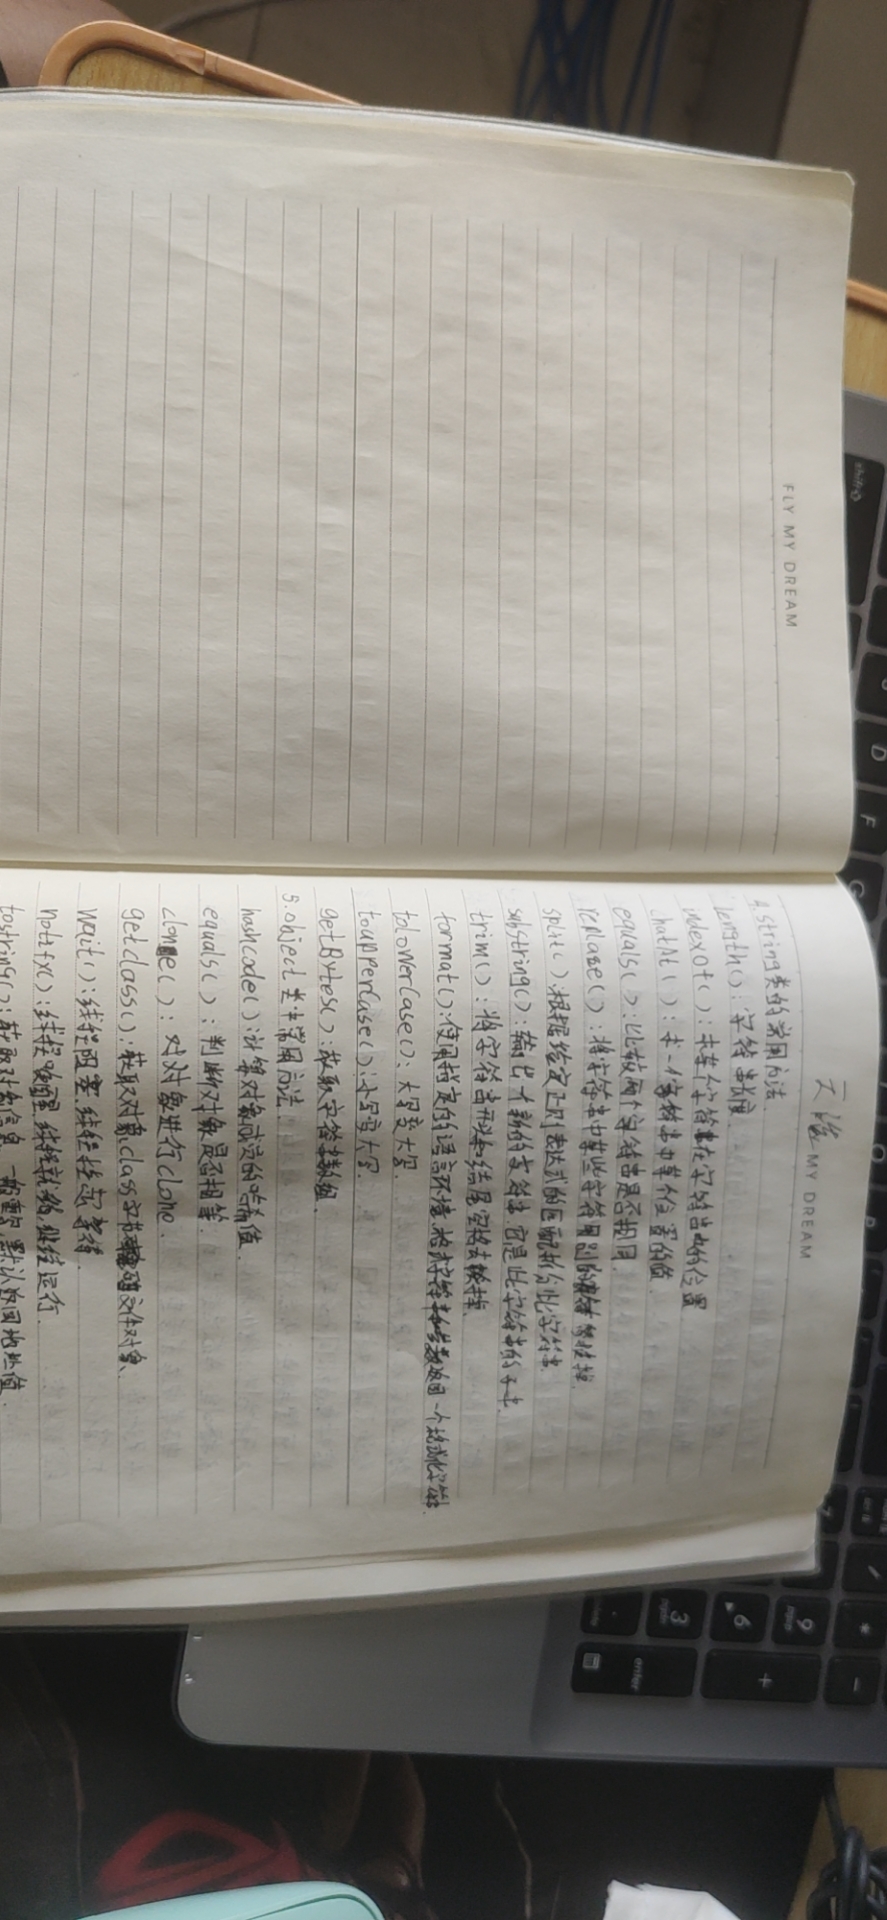 FLY MY DREAM
MY DREAM
4.string类的常用方法.
length():字符串长度
indexOf():求某个字符串在字符串中的位置
chatAt():求一字符串中某个位置的值
equals():比较两个字符串是否相同
replace():将字符串中某些字符用别的替换掉.
split():根据给定正则表达式的匹配拆分此字符串.
substring():输出一个新的字符串,它是此字符串的子串.
trim():将字符串开头和结尾空格去除掉.
format():使用指定的语言环境,格式字符串和参数返回一个格式化字符串.
toLowerCase():大写变大写.
toupperCase():小写变大写.
getBytes():获取字符串数组.
5.object类中常用方法.
hashcode():计算对象成员的哈希值.
equals():判断对象是否相等.
clone():对对象进行clone.
getclass():获取对象class字节码文件对象.
wait():线程阻塞,线程挂起等待.
notify():线程唤醒,线程就绪,继续运行.
tostring():获取对象信息,一般重写,默认返回地址值.
shift
D
F
G
O
P
3
6
9
*
+
-
enter